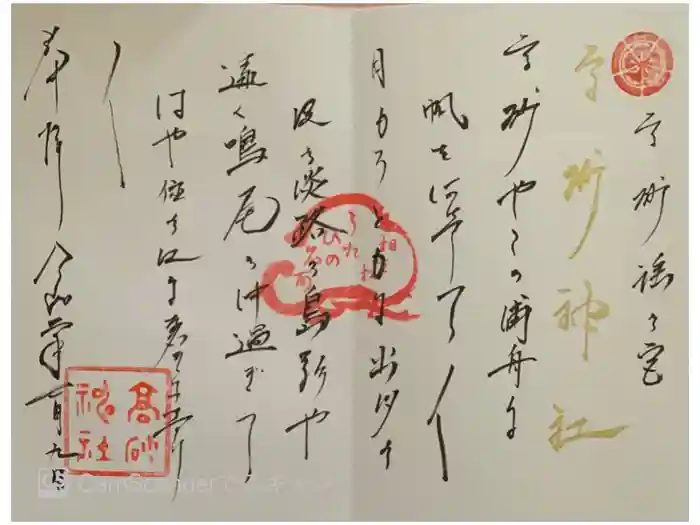 高砂 謡の宮
高砂神社
高砂やこの浦舟に
帆を阿げて〳〵
月もろともに出汐の
波の淡路の島影や
遠く鳴尾の沖過ぎて
はや住の江に着きにけり
〳〵
奉拝 令和
九日
高砂
神社
CamScanner でスキャン